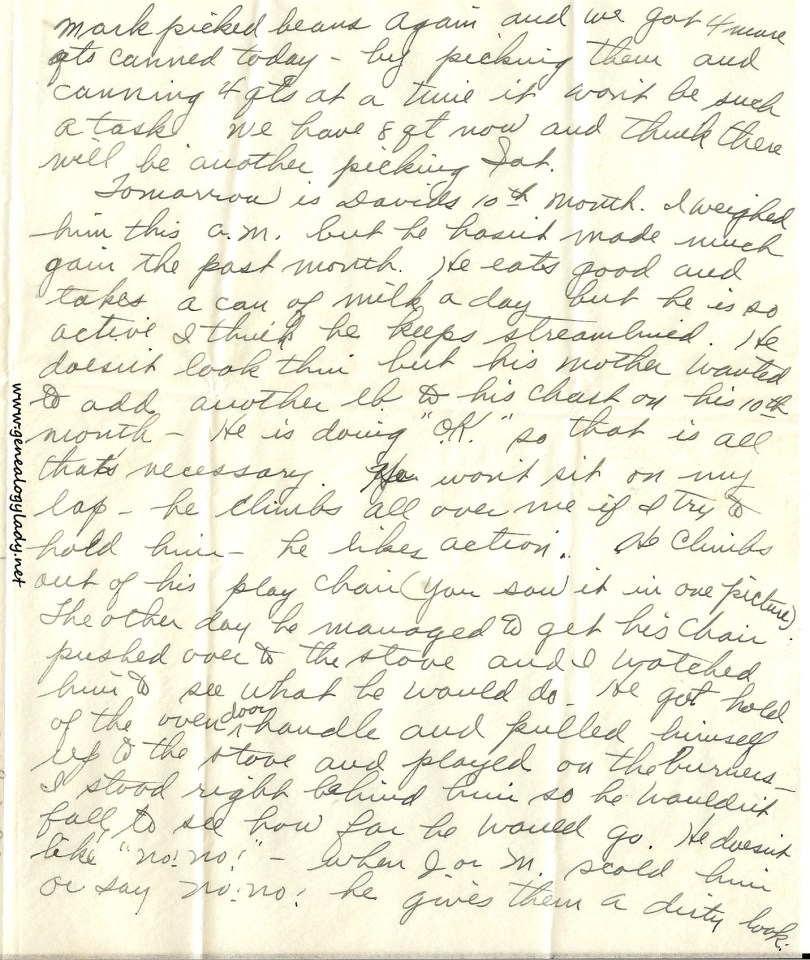 Mark picked beans again and we got 4 more
qts canned today - by picking them and
canning 4 qts at a time it won't be such
a task. We have 8 qt now and think there
will be another picking Sat.
Tomorrow is Davids 10th month. I weighed
him this a.m. but he hasn't made much
gain the past month. He eats good and
takes a can of milk a day but he is so
active I think he keeps streamlined. He
doesn't look thin but his mother wanted
to add another lb to his chart on his 10th
month - He is doing "O.K." so that is all
that's necessary. He won't sit on my
lap - he climbs all over me if I try to
hold him - he likes action. He climbs
out of his play chair (you saw it in one picture).
The other day he managed to get his chair
pushed over to the stove and I watched
him to see what he would do. He got hold
of the oven door handle and pulled himself
up to the stove and played on the burners -
I stood right behind him so he wouldn't
fall, to see how far he would go. He doesn't
like "no! no!" - when I or M. scold him
or say no! no! he gives them a dirty look.
www.genealogylady.net